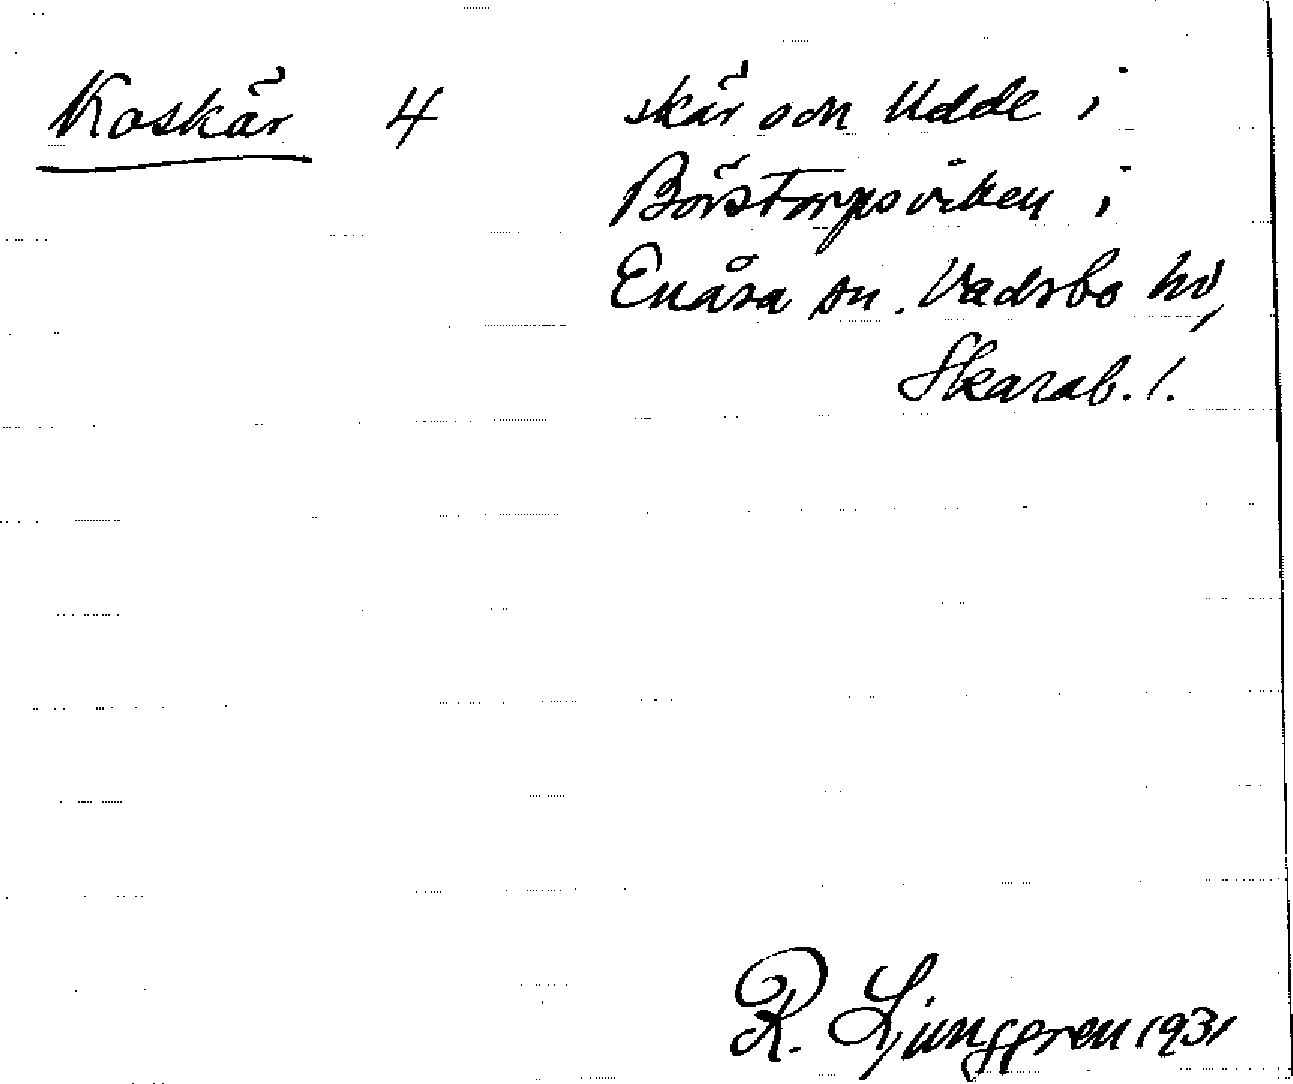 Koskär 4 skär och udde i
Börstorpsviken i
Enåsa sn. Vadsbo hd,
Skarab. l.
R. Ljunggren 1931